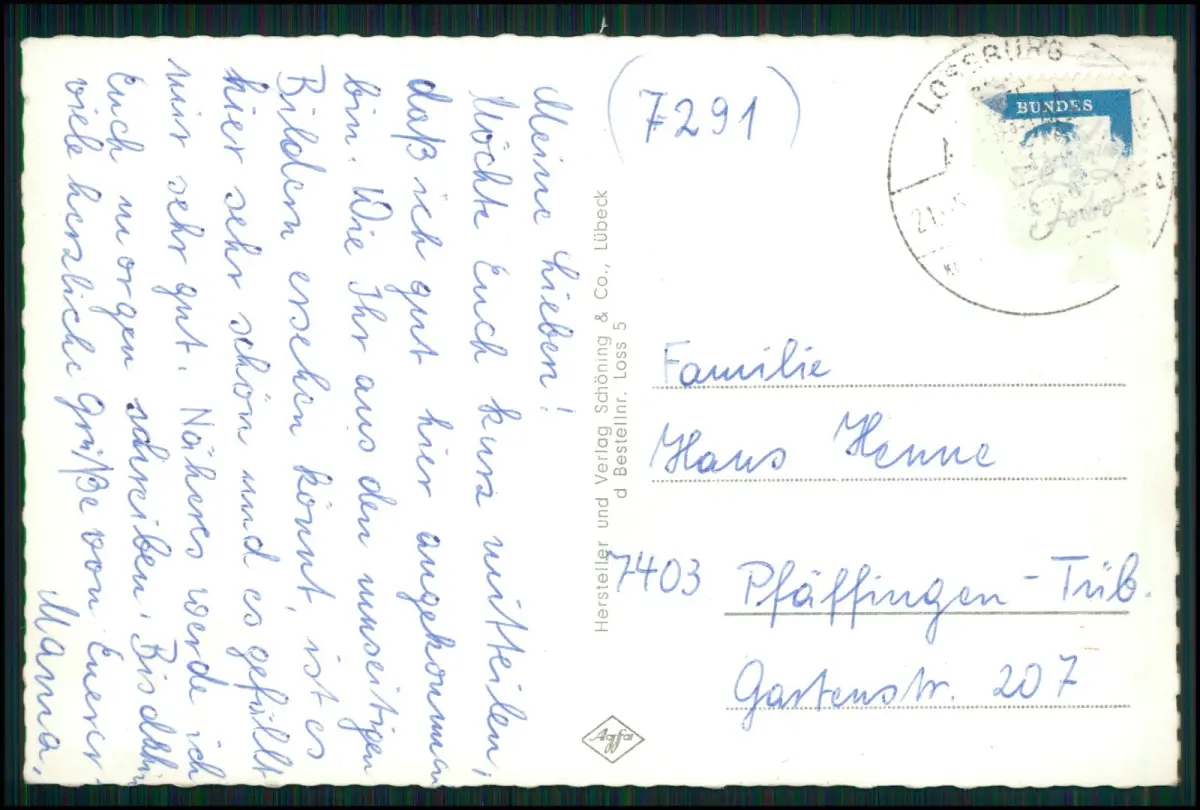 Meine Lieben!
Möchte Euch kurz mitteilen,
daß ich gut hier angekommen
bin. Wie Ihr aus den umseitigen
Bildern ersehen könnt, ist es
hier sehr schön und es gefällt
mir sehr gut. Näheres werde ich
Euch morgen schreiben. Bis dahin
viele herzliche Grüße von Euerer
Mama.
Hersteller und Verlag Schöning & Co., Lübeck
d Bestellnr. Loss 5
Agfa
(7291)
LOSSBURG
21.
BUNDES
Familie
Hans Henne
7403 Pfäffingen-Tüb.
Gartenstr. 207